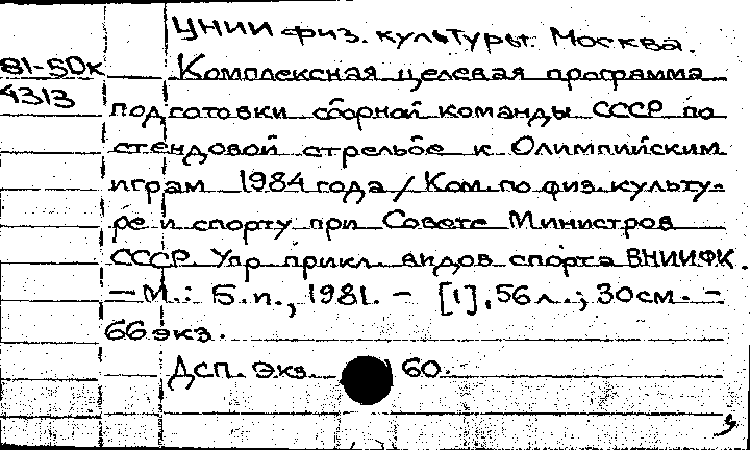 ЦНИИ физ. культуры. Москва.
81-5Dк Комплексная целевая программа
4313 подготовки сборной команды СССР по
стендовой стрельбе к Олимпийским
играм 1984 года / Ком. по физ. культу-
ре и спорту при Совете Министров
СССР. Упр прикл. видов спорта ВНИИФК.
— М.: Б.и., 1981. – [1], 56 л.; 30 см. –
66 экз.
Дсп. Экз. 60.